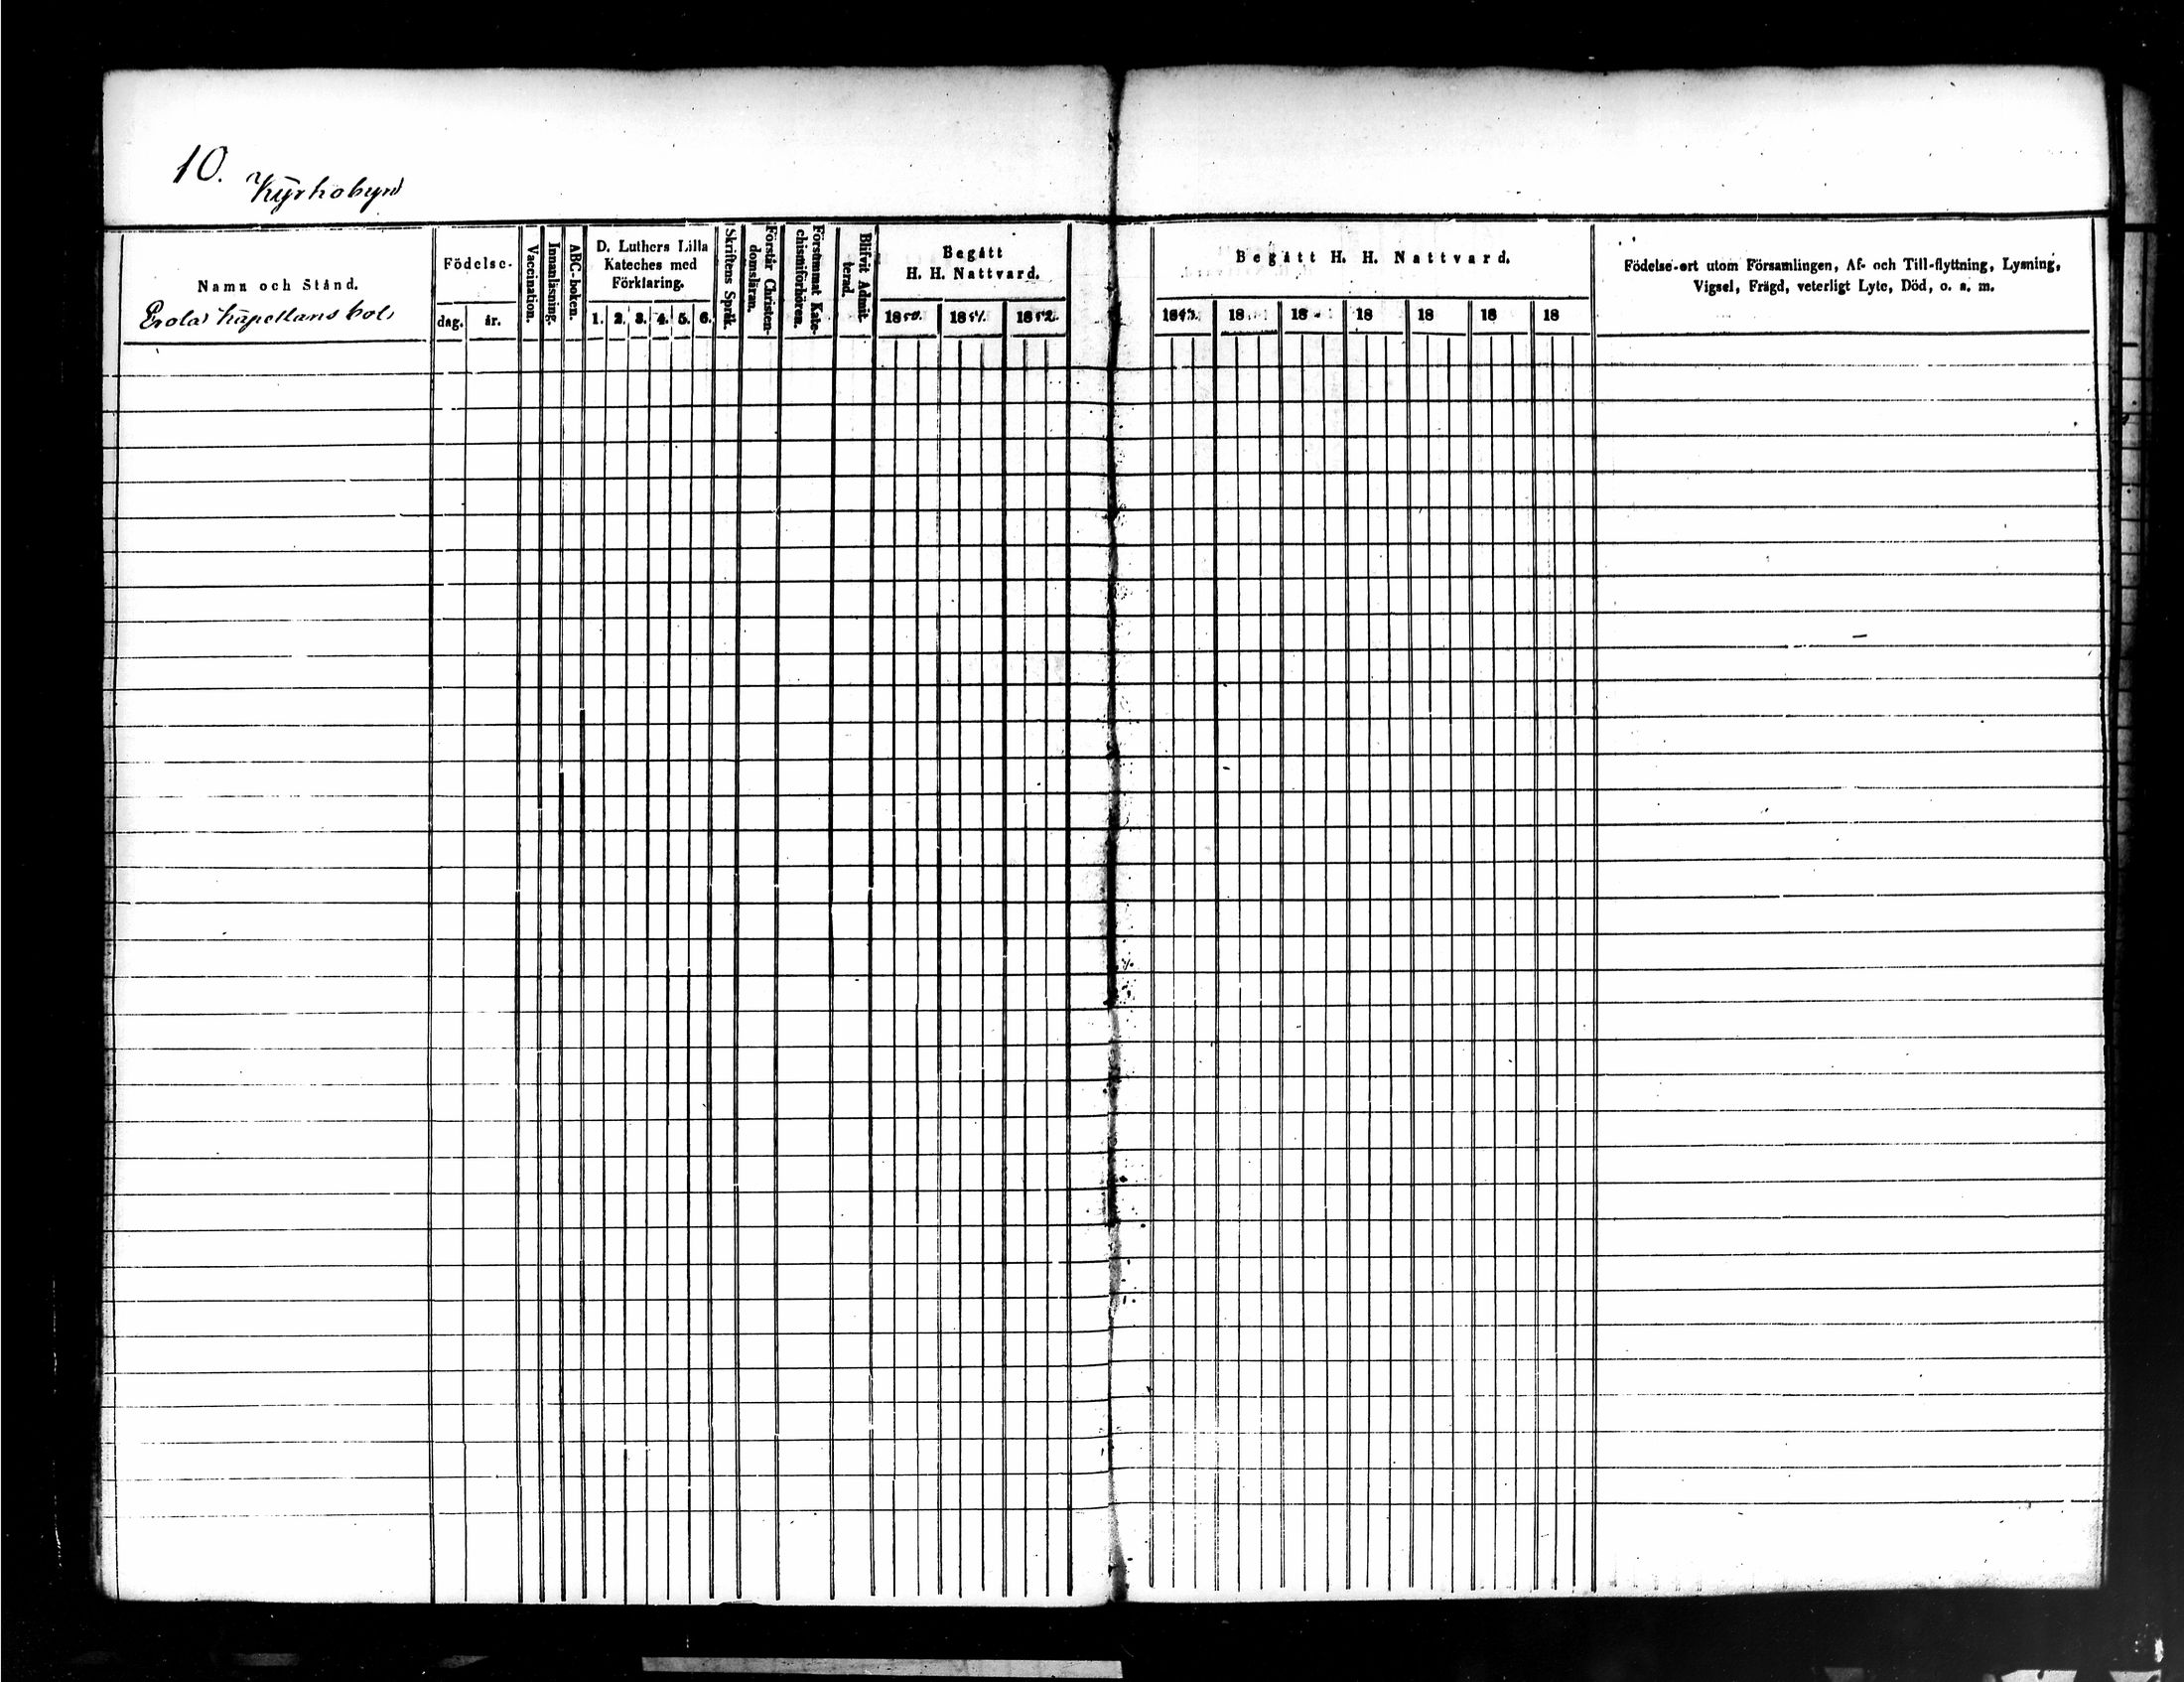 10.
Kyrkobyn
Namn och Stånd.
Erola Kapellans bol
Födelse-
dag.
år.
Vaccination.
Innanläsning.
ABC-boken.
D. Luthers Lilla
Kateches med
Förklaring.
1. 2. 3. 4. 5. 6.
Skriftens Språk.
Förstår Christen-
domsläran.
Försummat Kate-
chismiförhören.
Blifvit Admit-
terad.
Begått
H. H. Nattvard.
1850. 1851. 1852.
Begått H. H. Nattvard.
1853. 18 18 18 18 18 18
Födelse-ort utom Församlingen, Af- och Till-flyttning, Lysning,
Vigsel, Frägd, veterligt Lyte, Död, o. s. m.